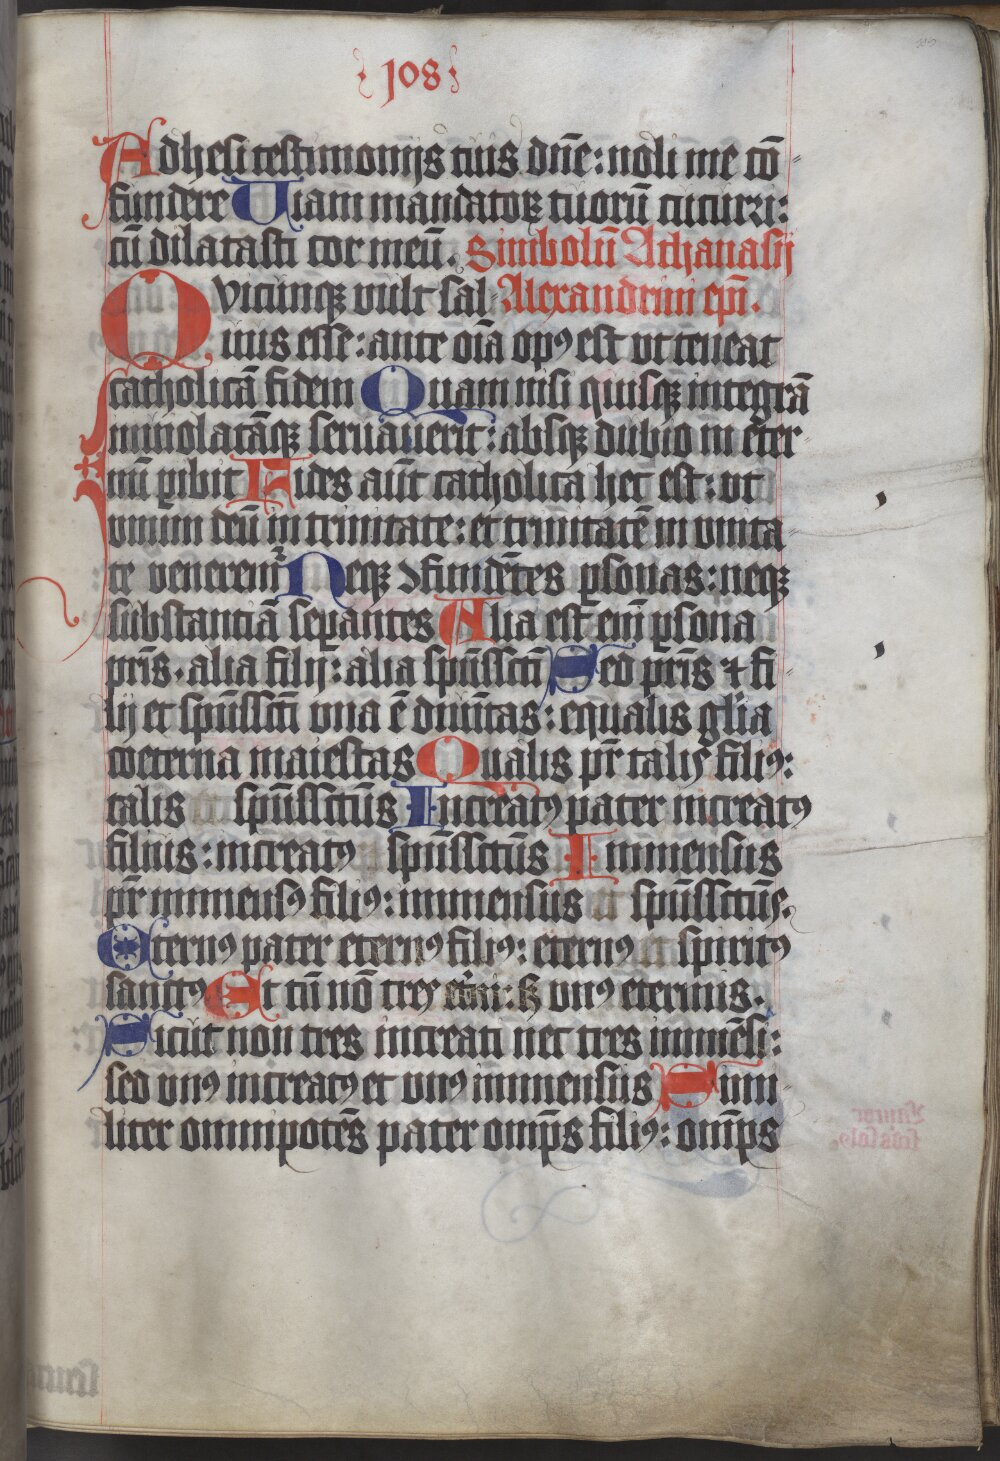 108
Adhesi testimonijs tuis dn̄e: noli me cō-
fundere Uiam mandatoꝝ tuorū cucurri:
cū dilatasti cor meū. Simbolū Athanasij
Quicūnqꝫ vult sal- Alexandrini ep̄i.
uus esse: ante oīa opꝰ est vt teneat
catholicā fidem Quam nisi quisqꝫ integrā
inuiolatāqꝫ seruauerit: absqꝫ dubio in eter
nū ꝑibit Fides aūt catholica hec est: vt
vnum deū in trinitate: et trinitatē in vnita-
te veneremꝰ Neqꝫ ↄfundētes ꝑsonas: neqꝫ
substantiā seꝑantes Alia est eni ꝑsona
pr̄is. alia filij: alia sp̄ussctī Sed pr̄is ⁊ fi-
lij et sp̄ussctī vna ē diuītas: equalis gl̄ia
coeterna maiestas Qualis pr̄ talis filiꝰ:
talis sp̄ussctūs Increatꝰ pater increatꝰ
filius: increatꝰ sp̄ussctūs Immensus
pr̄ immensꝰ filiꝰ: immensus sp̄ussctūs.
Eternꝰ pater eternꝰ filiꝰ: eternꝰ et spiritꝰ
sanctꝰ Et tn̄ nō tres et̄ni: sꝫ vnꝰ eternus.
Sicut non tres increati nec tres immēsi:
sed vnꝰ increatꝰ et vnꝰ immensus Simi-
liter omnipotēs pater omp̄s filiꝰ: omp̄s